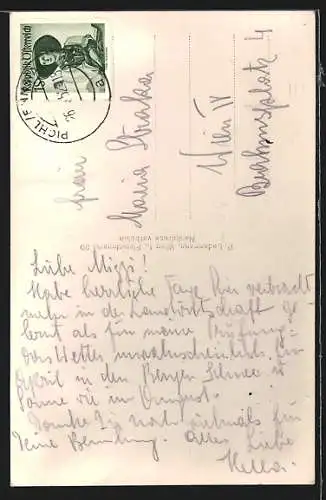 Republik Österreich
PICHL
Frau
Maria Straka
Wien IV
P. Ledermann, Wien I., Fleischmarkt 20
Nachdruck verboten
Liebe Mizzi!
Habe herrliche Tage hier verbracht
mehr in der Landwirtschaft ge-
lernt als für meine Prüfung.
Das Wetter unwahrscheinlich. Im
April in den Bergen Schnee u.
Sonne wie im August.
Danke Dir noch vielmals für
Deine Bemühung. Alles Liebe
Hella.